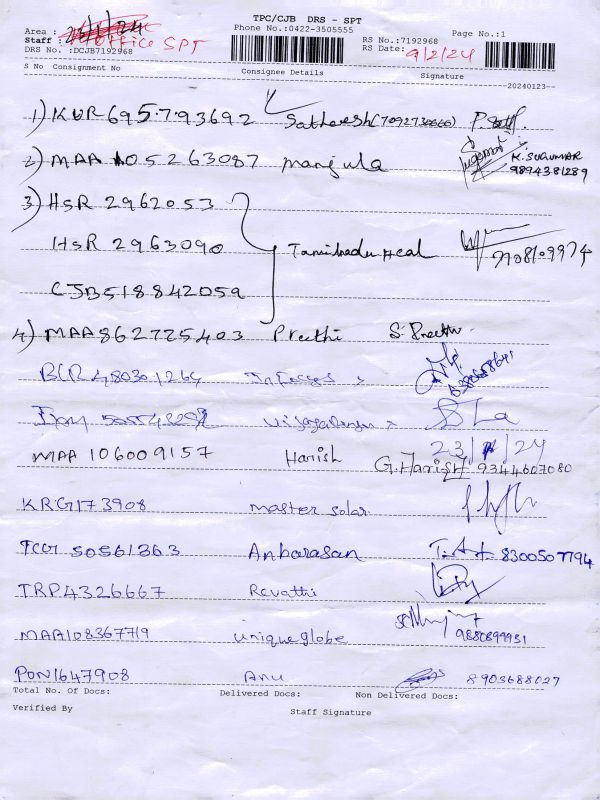 TPC/CJB DRS - SPT
Phone No.:0422-3505555
Area :
Staff : Office SPT
DRS No. :DCJB7192968
RS No.:7192968 Page No.:1
RS Date: 9/2/24
S No Consignment No Consignee Details Signature
20240123
1) KUR695793692 Satheesh(7092730666)
2) MAA 105263087 manjula K. SUGUMAR
9894381289
3) HSR 2962053
HSR 2963090 Tamilnadu Heal 9708109974
CJB518842059
4) MAA862725403 Preethi S. Preethi
BLR 480301264
MAA 106009157 Harish G.Harish 9344607080
KRG173908 master solar
TCG 50561363 Anbarasan 8300507794
TRP4326667 Revathi
MAA108367719 uniqueglobe 9880899931
PON1647908 Anu 8903688027
Total No. Of Docs: Delivered Docs: Non Delivered Docs:
Verified By Staff Signature